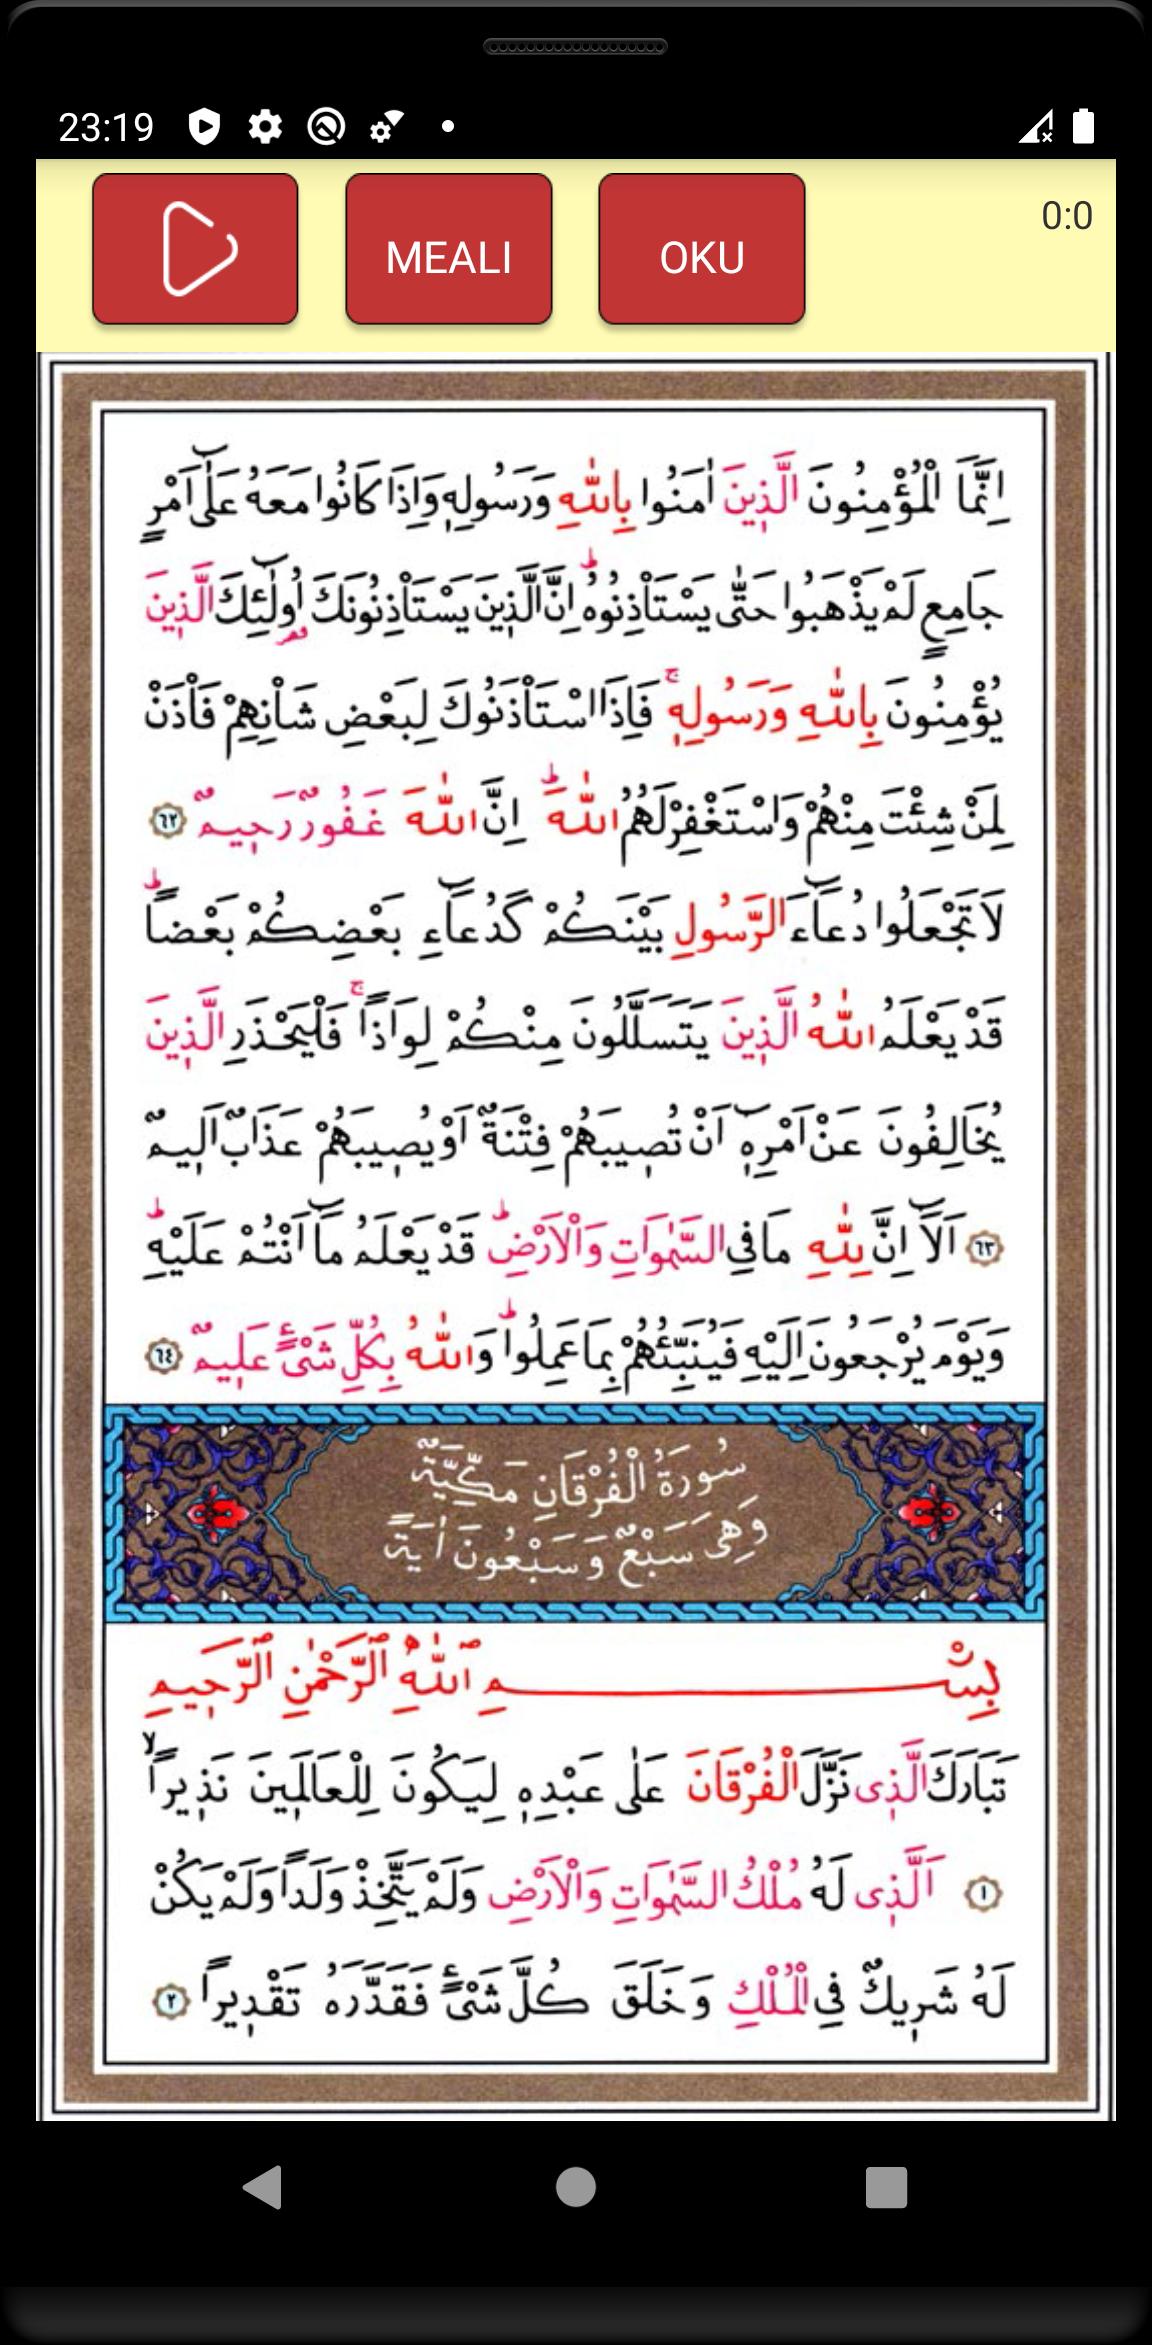 23:19
MEALI
OKU
0:0
اِنَّمَا الْمُؤْمِنُونَ الَّذ۪ينَ اٰمَنُوا بِاللّٰهِ وَرَسُولِه۪ وَاِذَا كَانُوا مَعَهُ عَلٰٓى اَمْرٍ
جَامِعٍ لَمْ يَذْهَبُوا حَتّٰى يَسْتَأْذِنُوهُۜ اِنَّ الَّذ۪ينَ يَسْتَأْذِنُونَكَ اُو۬لٰٓئِكَ الَّذ۪ينَ
يُؤْمِنُونَ بِاللّٰهِ وَرَسُولِه۪ۚ فَاِذَا اسْتَأْذَنُوكَ لِبَعْضِ شَأْنِهِمْ فَأْذَنْ
لِمَنْ شِئْتَ مِنْهُمْ وَاسْتَغْفِرْ لَهُمُ اللّٰهَۜ اِنَّ اللّٰهَ غَفُورٌ رَح۪يمٌ ٦٢
لَا تَجْعَلُوا دُعَٓاءَ الرَّسُولِ بَيْنَكُمْ كَدُعَٓاءِ بَعْضِكُمْ بَعْضاًۜ
قَدْ يَعْلَمُ اللّٰهُ الَّذ۪ينَ يَتَسَلَّلُونَ مِنْكُمْ لِوَاذاًۚ فَلْيَحْذَرِ الَّذ۪ينَ
يُخَالِفُونَ عَنْ اَمْرِه۪ٓ اَنْ تُص۪يبَهُمْ فِتْنَةٌ اَوْ يُص۪يبَهُمْ عَذَابٌ اَل۪يمٌ
٦٣ اَلَٓا اِنَّ لِلّٰهِ مَا فِي السَّمٰوَاتِ وَالْاَرْضِۜ قَدْ يَعْلَمُ مَٓا اَنْتُمْ عَلَيْهِۜ
وَيَوْمَ يُرْجَعُونَ اِلَيْهِ فَيُنَبِّئُهُمْ بِمَا عَمِلُواۜ وَاللّٰهُ بِكُلِّ شَيْءٍ عَل۪يمٌ ٦٤
سُورَةُ الْفُرْقَانِ مَكِّيَّةٌ
وَهِيَ سَبْعٌ وَسَبْعُونَ اٰيَةً
بِسْمِ اللّٰهِ الرَّحْمٰنِ الرَّح۪يمِ
تَبَارَكَ الَّذ۪ي نَزَّلَ الْفُرْقَانَ عَلٰى عَبْدِه۪ لِيَكُونَ لِلْعَالَم۪ينَ نَذ۪يراًۙ
١ اَلَّذ۪ي لَهُ مُلْكُ السَّمٰوَاتِ وَالْاَرْضِ وَلَمْ يَتَّخِذْ وَلَداً وَلَمْ يَكُنْ
لَهُ شَر۪يكٌ فِي الْمُلْكِ وَخَلَقَ كُلَّ شَيْءٍ فَقَدَّرَهُ تَقْد۪يراً ٢